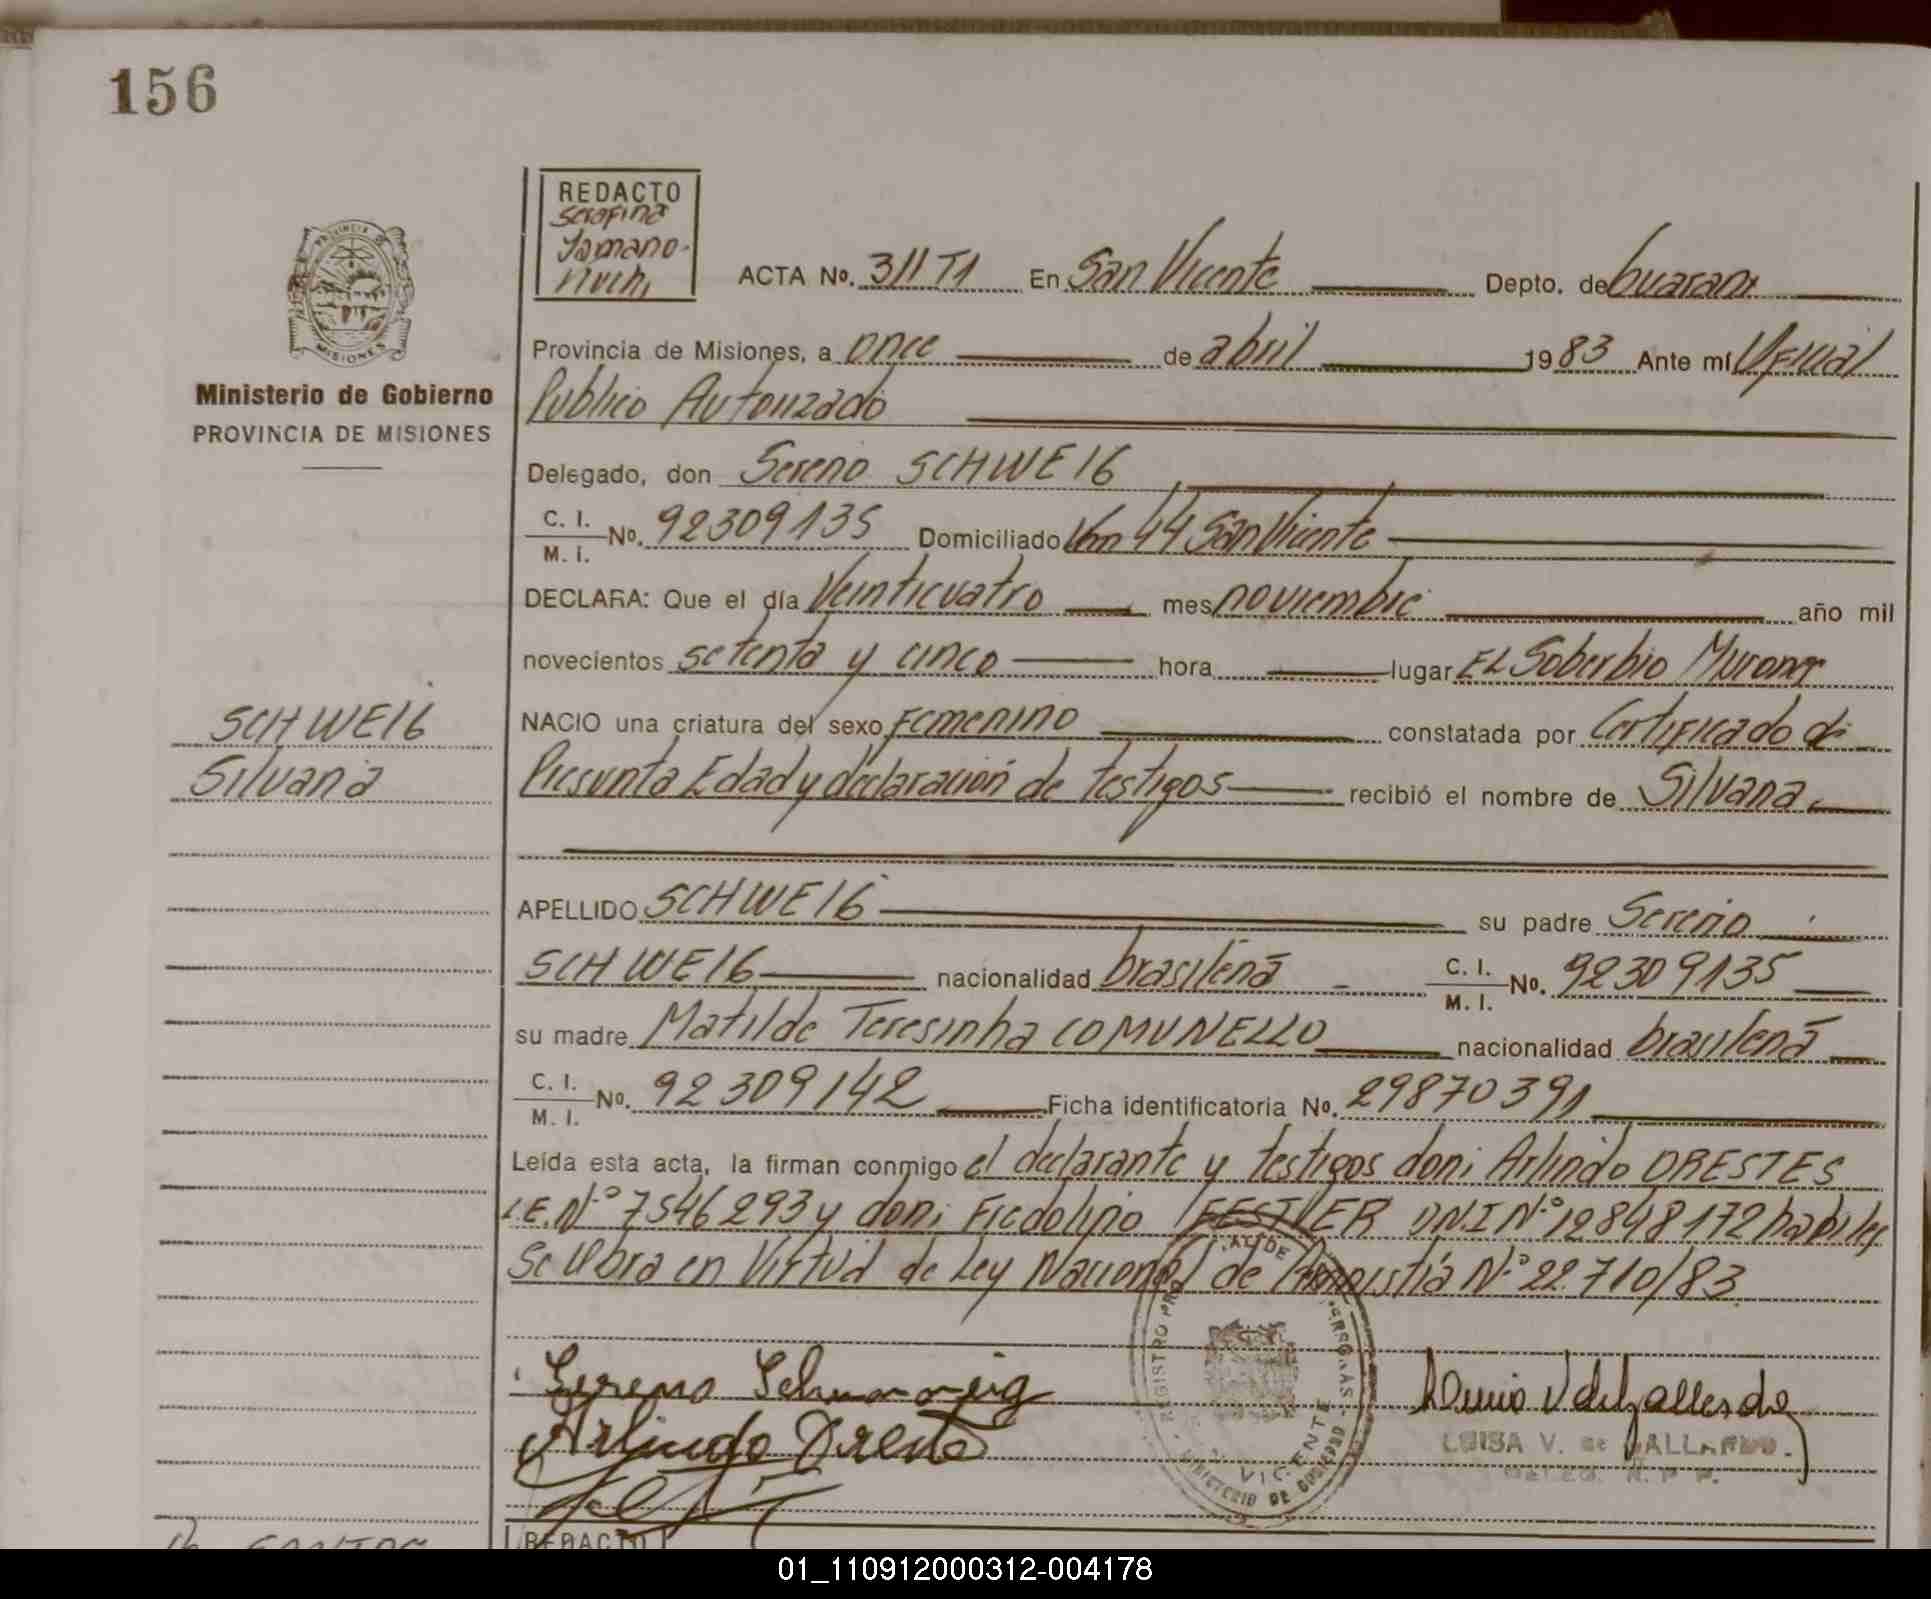 156
REDACTO
Serafina
ACTA No. 311 T1 En San Vicente Depto. de Guarani
Provincia de Misiones, a once de abril 1983 Ante mí Oficial
Publico Autorizado
Delegado, don Sereno SCHWEIG
C. I. / M. I. No. 92309135 Domiciliado Km 44 San Vicente
DECLARA: Que el día Veinticuatro mes noviembre año mil
novecientos setenta y cinco hora lugar EL Soberbio
NACIO una criatura del sexo Femenino constatada por Certificado de
Presunta Edad y declaración de testigos recibió el nombre de Silvana
APELLIDO SCHWEIG su padre Sereno
SCHWEIG nacionalidad brasileña C. I. / M. I. No. 92309135
su madre Matilde Teresinha COMUNELLO nacionalidad brasileña
C. I. / M. I. No. 92309142 Ficha identificatoria No. 29870391
Leída esta acta, la firman conmigo el declarante y testigos don: Arlindo ORESTES
L.E. N° 7546293 y don: Fredolino DNI N° 12848172 habiles
Se labra en Virtud de Ley Nacional de Amnistía N° 22.710/83
Sereno Schweig
Arlindo Oreste
LUISA V. de GALLARDO
MINISTERIO DE GOBIERNO
VICENTE
Ministerio de Gobierno
PROVINCIA DE MISIONES
SCHWEIG
Silvana
REDACTO
01_110912000312-004178